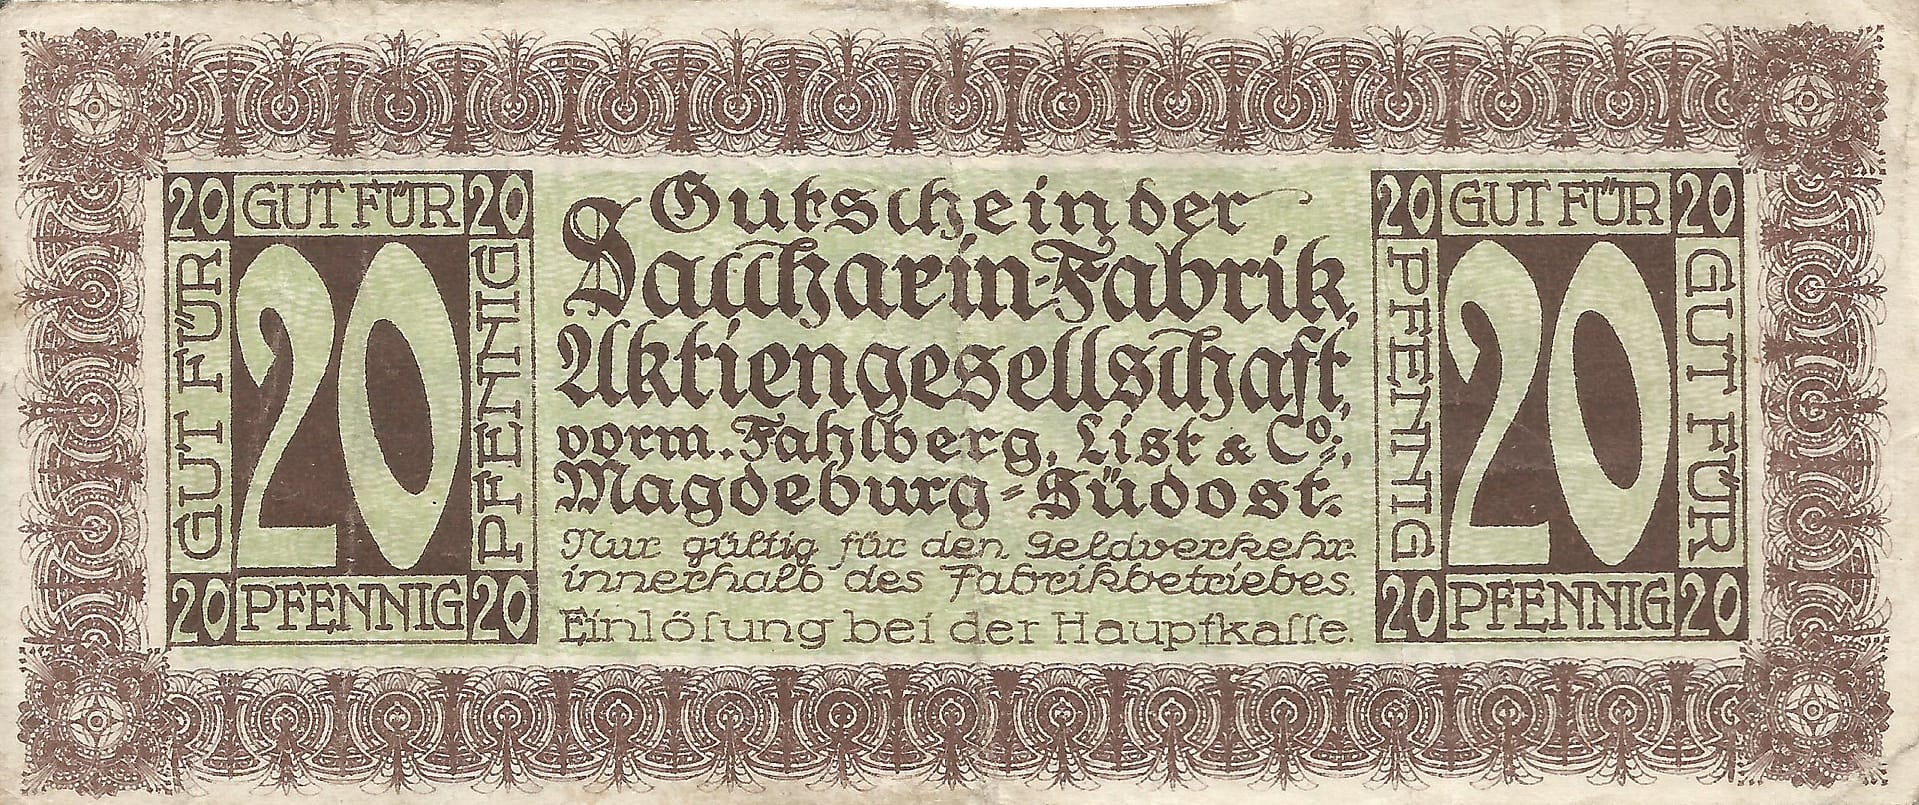 20 GUT FÜR 20
GUT FÜR
20
PFENNIG
20 PFENNIG 20
Gutschein der
Saccharin-Fabrik,
Aktiengesellschaft,
vorm. Fahlberg, List & Co.,
Magdeburg-Südost.
Nur gültig für den Geldverkehr
innerhalb des Fabrikbetriebes.
Einlöſung bei der Hauptkaſſe.
20 GUT FÜR 20
PFENNIG
20
GUT FÜR
20 PFENNIG 20